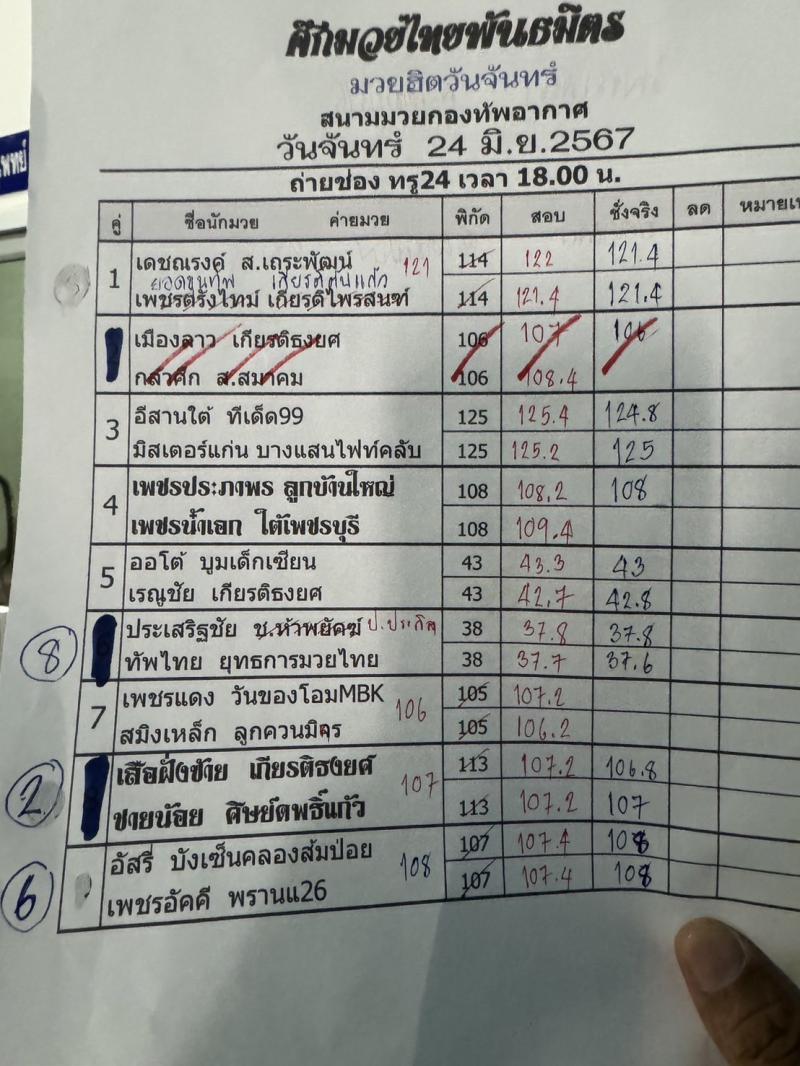 ศึกมวยไทยพันธมิตร
มวยฮิตวันจันทร์
สนามมวยกองทัพอากาศ
วันจันทร์ 24 มิ.ย.2567
ถ่ายช่อง ทรู24 เวลา 18.00 น.
คู่ ชื่อนักมวย ค่ายมวย พิกัด สอบ ชั่งจริง ลด
1 เดชณรงค์ ส.เถระพัฒน์ 121 114 122 121.4
ยอดขุนทัพ
เพชรตรังใหม่ เกียรติไพรสนฑ์ 114 121.4 121.4
เมืองลาว เกียรติธงยศ 106 107 106
กลัวศึก ส.สมาคม 106 108.4
3 อีสานใต้ ทีเด็ด99 125 125.4 124.8
มิสเตอร์แก่น บางแสนไฟท์คลับ 125 125.2 125
4 เพชรประภาพร ลูกบ้านใหญ่ 108 108.2 108
เพชรน้ำเอก ใต้เพชรบุรี 108 109.4
5 ออโต้ บูมเด็กเซียน 43 43.3 43
เรณูชัย เกียรติธงยศ 43 42.7 42.8
8 ประเสริฐชัย ช.ห้าพยัคฆ์ ป.ประกิต 38 37.8 37.8
ทัพไทย ยุทธการมวยไทย 38 37.7 37.6
7 เพชรแดง วันของโอมMBK 106 105 107.2
สมิงเหล็ก ลูกควนมิตร 105 106.2
2 เสือฝั่งซ้าย เกียรติธงยศ 107 113 107.2 106.8
ชายน้อย ศิษย์ดพธิ์แก้ว 113 107.2 107
อัสรี บังเซ็นคลองส้มป่อย 108 107 107.4 108
6 เพชรอัคคี พรานแ26 107 107.4 108